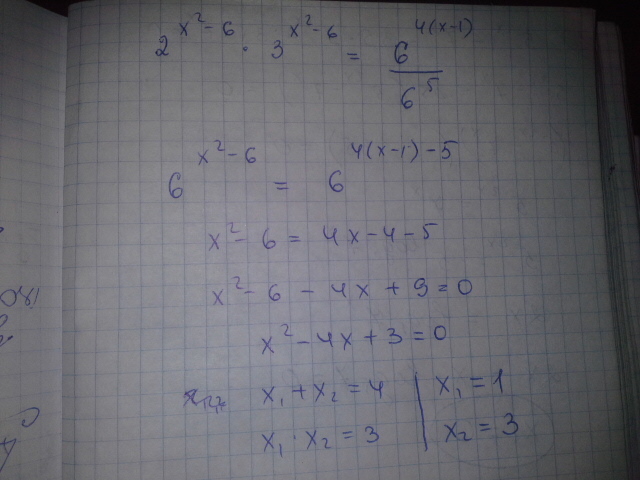 2^(x²-6) · 3^(x²-6) = 6^(4(x-1)) / 6^5
6^(x²-6) = 6^(4(x-1)-5)
x² - 6 = 4x - 4 - 5
x² - 6 - 4x + 9 = 0
x² - 4x + 3 = 0
x₁ + x₂ = 4 | x₁ = 1
x₁ · x₂ = 3 | x₂ = 3